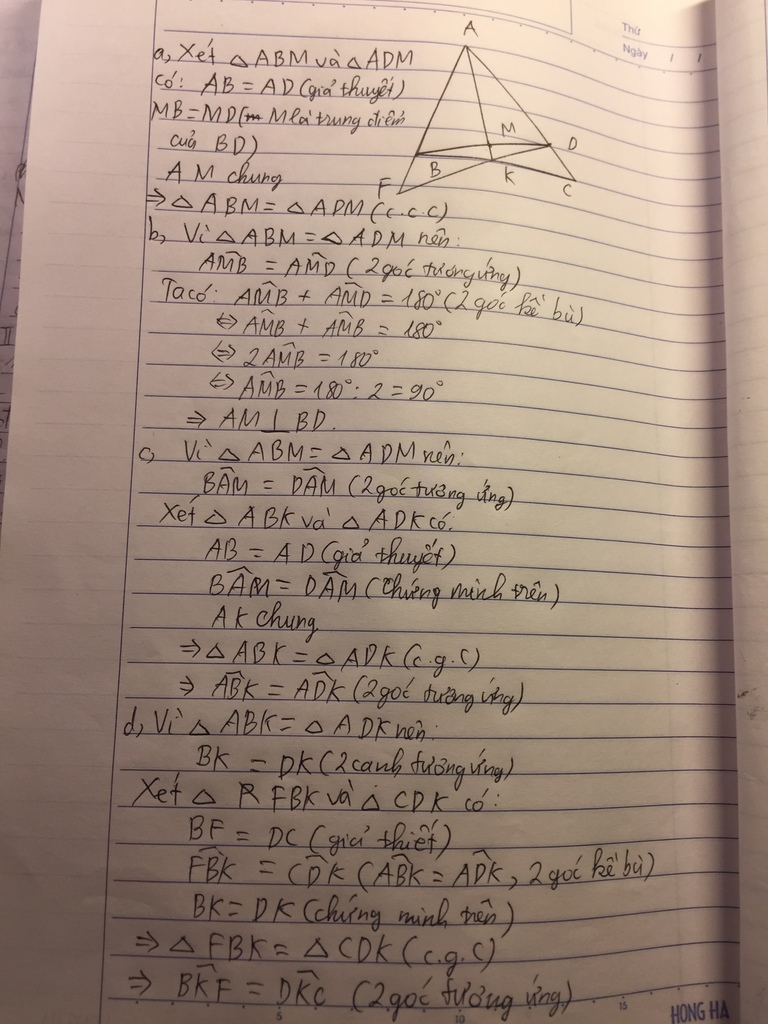 Thứ
Ngày
A
M
D
B
K
C
F
a, Xét △ABM và △ADM
Có: AB = AD (giả thuyết)
MB = MD (M là trung điểm
của BD)
AM chung
⇒ △ABM = △ADM (c.c.c)
b, Vì △ABM = △ADM nên:
AM̂B = AM̂D (2 góc tương ứng)
Ta có: AM̂B + AM̂D = 180° (2 góc kề bù)
⇔ AM̂B + AM̂B = 180°
⇔ 2AM̂B = 180°
⇔ AM̂B = 180° : 2 = 90°
⇒ AM ⊥ BD.
c, Vì △ABM = △ADM nên:
BÂM = DÂM (2 góc tương ứng)
Xét △ABK và △ADK có:
AB = AD (giả thuyết)
BÂM = DÂM (chứng minh trên)
AK chung
⇒ △ABK = △ADK (c.g.c)
⇒ AB̂K = AD̂K (2 góc tương ứng)
d, Vì △ABK = △ADK nên:
BK = DK (2 canh tương ứng)
Xét △ FBK và △CDK có:
BF = DC (giả thiết)
FB̂K = CD̂K (AB̂K = AD̂K, 2 góc kề bù)
BK = DK (chứng minh trên)
⇒ △FBK = △CDK (c.g.c)
⇒ BK̂F = DK̂C (2 góc tương ứng)
5 10 15
HONG HA